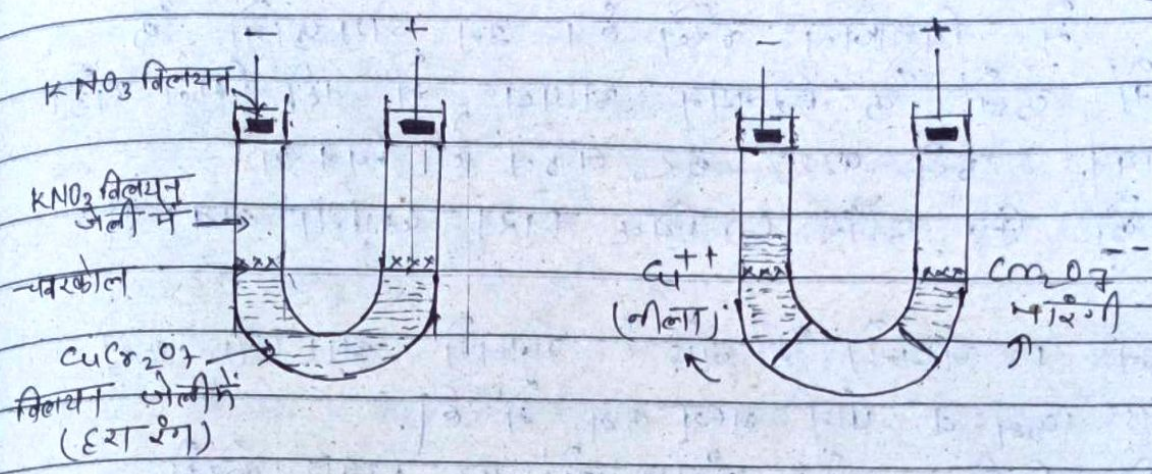 − +
− +
KNO3 विलयन
KNO3 विलयन
जेली में →
×××
×××
चारकोल
CuCr2O7 →
विलयन जेली में
(हरा रंग)
Cu++
(नीला)
×××
×××
Cr2O7−−
नारंगी